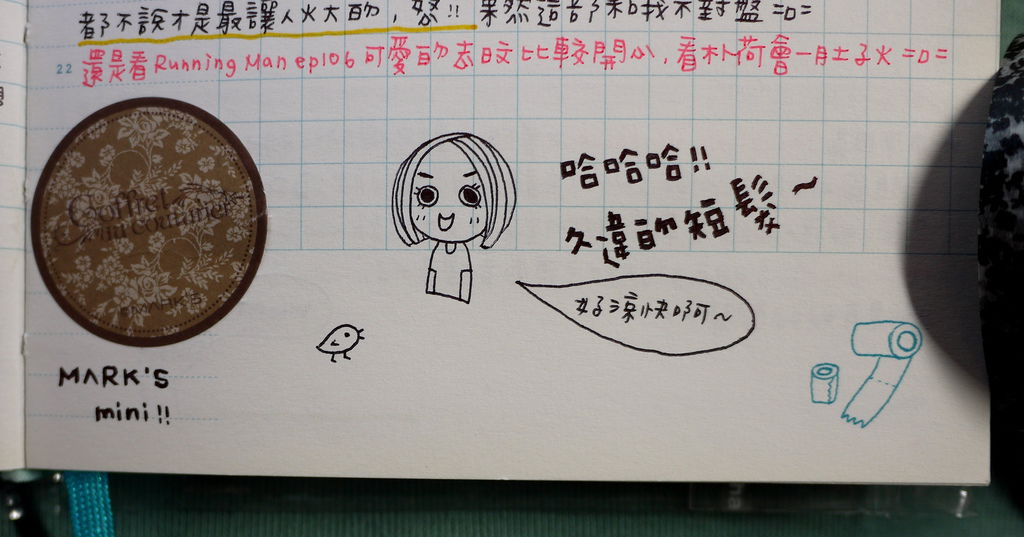 都不說才是最讓人火大的，怒!! 果然這部和我不對盤=口=
22 還是看Running Man ep106可愛的志旼比較開心，看朴荷會一月土子火=口=
Coffret
in couture
MARK'S
哈哈哈!!
久違的短髮~
好涼快啊~
MARK'S
mini!!